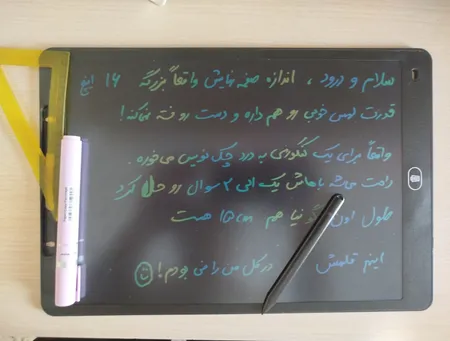 سلام و درود ، اندازه صفحه نمایش واقعاً بزرگه ۱۶ اینچ
قدرت لمس خوبی رو هم داره و دست رو خسته نمیکنه!
واقعاً برای یک کنکوری به درد چک نویس می‌خوره.
راحت میشه باهاش یک الی ۲ سوال رو حل کرد
طول اون هم ۱۵ cm هست
اینم قلمش
در کل من راضی بودم!